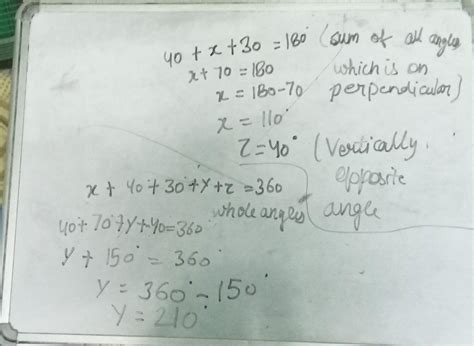 40 + x + 30 = 180° (sum of all angles
x + 70 = 180 which is on
x = 180 - 70 perpendicular)
x = 110°
z = 40° (Vertically
opposite
angle
x + 40° + 30° + y + z = 360
whole angles
40° + 70° + y + 40 = 360
y + 150° = 360°
y = 360° - 150°
y = 210°